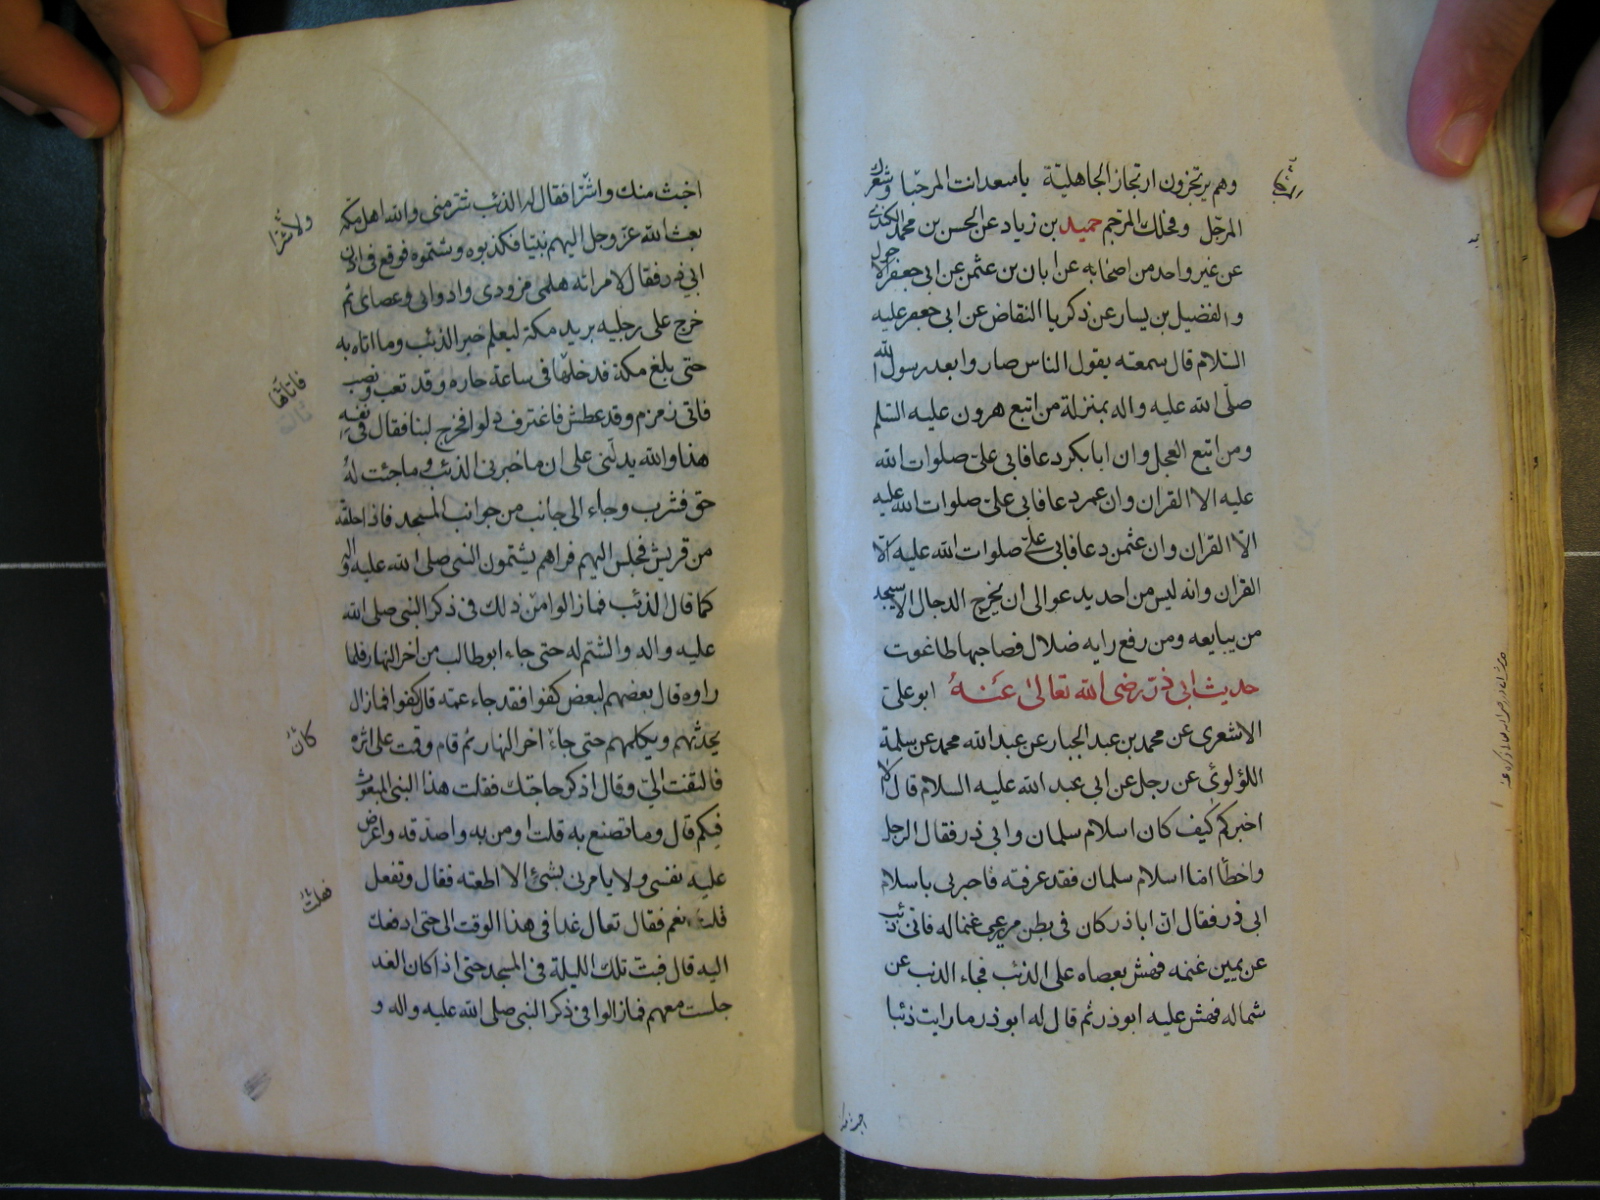 وهم يرتجزون ارتجاز الجاهلية يا سعد انت المرجبا وشعرك
المرجل وفحلك المرجم حميد بن زياد عن الحسن بن محمد الكندي
عن غير واحد من اصحابه عن ابان بن عثمن عن ابي جعفر الاحول
والفضيل بن يسار عن ذكريا النقاض عن ابي جعفر عليه
السلام قال سمعته يقول الناس صاروا بعد رسول الله
صلى الله عليه واله بمنزلة من اتبع هرون عليه السلم
ومن اتبع العجل وان ابا بكر دعا فابى علي صلوات الله
عليه الا القران وان عمر دعا فابى علي صلوات الله عليه
الا القران وان عثمن دعا فابى علي صلوات الله عليه الا
القران وانه ليس من احد يدعو الى ان يخرج الدجال الا سيجد
من يبايعه ومن رفع راية ضلال فصاحبها طاغوت
حديث ابي ذر رضي الله تعالى عنه ابو علي
الاشعري عن محمد بن عبد الجبار عن عبد الله محمد عن سلمة
اللؤلوئي عن رجل عن ابي عبد الله عليه السلام قال الا
اخبركم كيف كان اسلام سلمان وابي ذر فقال الرجل
واخطأ اما اسلام سلمان فقد عرفته فاخبرني باسلام
ابي ذر فقال ان ابا ذر كان في بطن مر يرعى غنما له فاتى ذئب
عن يمين غنمه فهش بعصاه على الذئب فجاء الذئب عن
شماله فهش عليه ابو ذر ثم قال له ابو ذر ما رايت ذئبا
اخبث منك واشرا فقال له الذئب شر مني والله اهل مكة
بعث الله عز وجل اليهم نبيا فكذبوه وشتموه فوقع في اذن
ابي ذر فقال لامراته هلمي مزودي واداوتي وعصاي ثم
خرج على رجليه يريد مكة ليعلم خبر الذئب وما اتاه به
حتى بلغ مكة فدخلها في ساعة حاره وقد تعب ونصب
فاتى زمزم وقد عطش فاغترف دلوا فخرج لبنا فقال في نفسه
هذا والله يدلني على ان ما خبرني الذئب وما جئت له
حق فشرب وجاء الى جانب من جوانب المسجد فاذا حلقة
من قريش فجلس اليهم فراهم يشتمون النبي صلى الله عليه واله
كما قال الذئب فما زالوا من ذلك في ذكر النبي صلى الله
عليه واله والشتم له حتى جاء ابو طالب من اخر النهار فلما
راوه قال بعضهم لبعض كفوا فقد جاء عمه قال كفوا فما زال
يحدثهم ويكلمهم حتى جاء اخر النهار ثم قام وقمت على اثره
فالتفت الي وقال اذكر حاجتك فقلت هذا النبي المبعوث
فيكم قال وما تصنع به قلت اومن به واصدقه واعرض
عليه نفسي ولا يامرني بشيء الا اطعته فقال وتفعل
قلت نعم فقال تعال غدا في هذا الوقت الى حتى ادفعك
اليه قال فبت تلك الليلة في المسجد حتى اذا كان الغد
جلست معهم فما زالوا في ذكر النبي صلى الله عليه واله و
ولا شرا
كان
فعلت